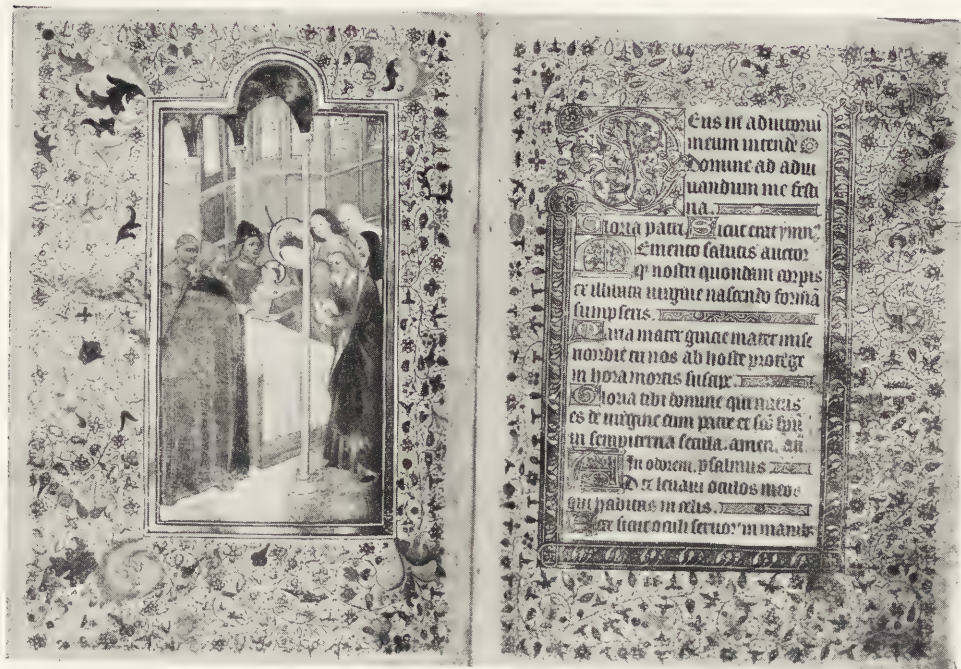 Eus in adiutoriu
meum intende
Domine ad adiu
uandum me festi
na.
Gloria patri Sicut erat ymn9
Emento salutis auctor
q nostri quondam corpis
ex illibata uirgine nascendo formā
sumpseris.
Maria mater gracie mater mise
ricordie tu nos ab hoste protege
in hora mortis suscipe
Gloria tibi domine qui natus
es de uirgine cum patre et sco spū
in sempiterna secula. amen. añ
In odorem. psalmus
D te leuaui oculos meos
qui habitas in celis.
Ecce sicut oculi seruor in manib